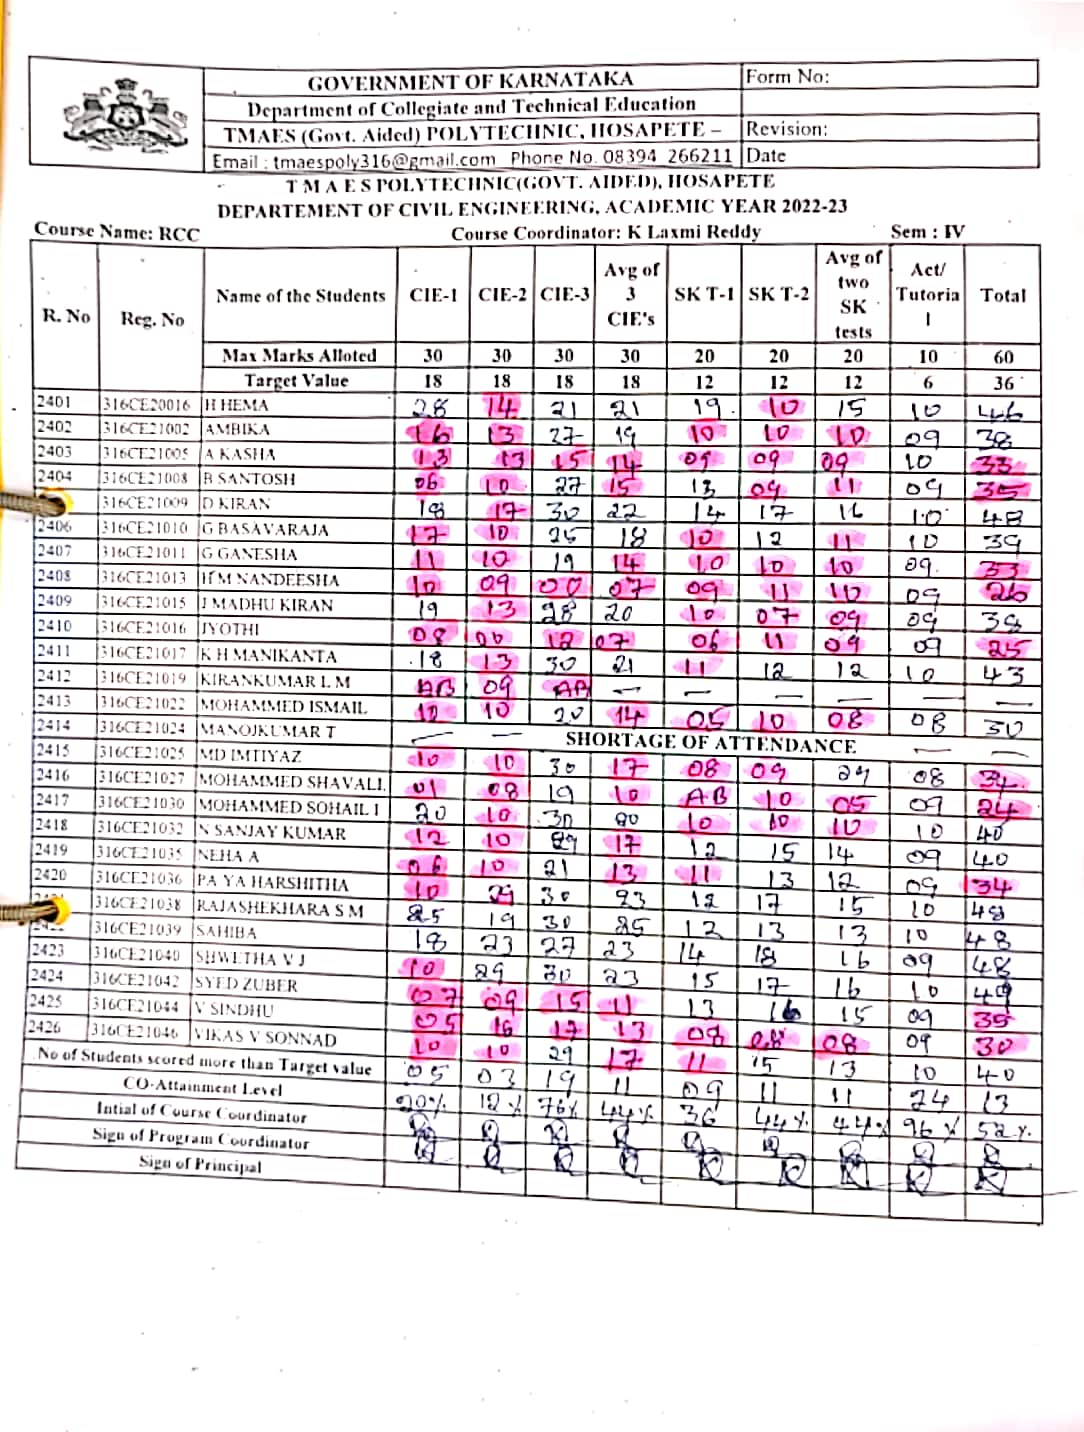 GOVERNMENT OF KARNATAKA Form No:
Department of Collegiate and Technical Education
TMAES (Govt. Aided) POLYTECHNIC, HOSAPETE – Revision:
Email : tmaespoly316@gmail.com Phone No. 08394 266211 Date
T M A E S POLYTECHNIC(GOVT. AIDED), HOSAPETE
DEPARTEMENT OF CIVIL ENGINEERING, ACADEMIC YEAR 2022-23
Course Name: RCC Course Coordinator: K Laxmi Reddy Sem : IV
R. No Reg. No Name of the Students CIE-1 CIE-2 CIE-3 Avg of 3 CIE's SK T-1 SK T-2 Avg of two SK tests Act/ Tutoria l Total
Max Marks Alloted 30 30 30 30 20 20 20 10 60
Target Value 18 18 18 18 12 12 12 6 36
2401 316CE20016 H HEMA 28 14 21 21 19 10 15 10 46
2402 316CE21002 AMBIKA 16 13 27 19 10 10 10 09 38
2403 316CE21005 A KASHA 13 13 15 14 09 09 09 10 33
2404 316CE21008 B SANTOSH 06 10 27 15 13 09 11 09 35
316CE21009 D KIRAN 18 17 30 22 14 17 16 10 48
2406 316CE21010 G BASAVARAJA 17 10 25 18 10 12 11 10 39
2407 316CE21011 G GANESHA 11 10 19 14 10 10 10 09 33
2408 316CE21013 H M NANDEESHA 10 09 00 07 09 11 10 09 26
2409 316CE21015 J MADHU KIRAN 19 13 28 20 10 07 09 09 38
2410 316CE21016 JYOTHI 08 00 12 07 06 11 09 09 25
2411 316CE21017 K H MANIKANTA 18 13 30 21 11 12 12 10 43
2412 316CE21019 KIRANKUMAR L M AB 09 AB — — — — — —
2413 316CE21022 MOHAMMED ISMAIL 10 10 20 14 05 10 08 08 30
2414 316CE21024 MANOJKUMAR T — — SHORTAGE OF ATTENDANCE — —
2415 316CE21025 MD IMTIYAZ 10 10 30 17 08 09 29 08 34
2416 316CE21027 MOHAMMED SHAVALI. 01 08 19 10 AB 10 05 09 24
2417 316CE21030 MOHAMMED SOHAIL I 20 10 30 20 10 10 10 10 40
2418 316CE21032 N SANJAY KUMAR 12 10 29 17 12 15 14 09 40
2419 316CE21035 NEHA A 06 10 21 13 11 13 12 09 34
2420 316CE21036 PA YA HARSHITHA 10 29 30 23 12 17 15 10 48
316CE21038 RAJASHEKHARA S M 25 19 30 25 12 13 13 10 48
316CE21039 SAHIBA 18 23 27 23 14 18 16 09 48
2423 316CE21040 SHWETHA V J 10 29 30 23 15 17 16 10 49
2424 316CE21042 SYED ZUBER 07 09 15 11 13 16 15 09 35
2425 316CE21044 V SINDHU 05 16 17 13 08 08 08 09 30
2426 316CE21046 VIKAS V SONNAD 10 10 29 17 11 15 13 10 40
No of Students scored more than Target value 05 03 19 11 09 11 11 24 13
CO-Attainment Level 20% 12% 76% 44% 36 44% 44% 96% 52%
Intial of Course Coordinator
Sign of Program Coordinator
Sign of Principal